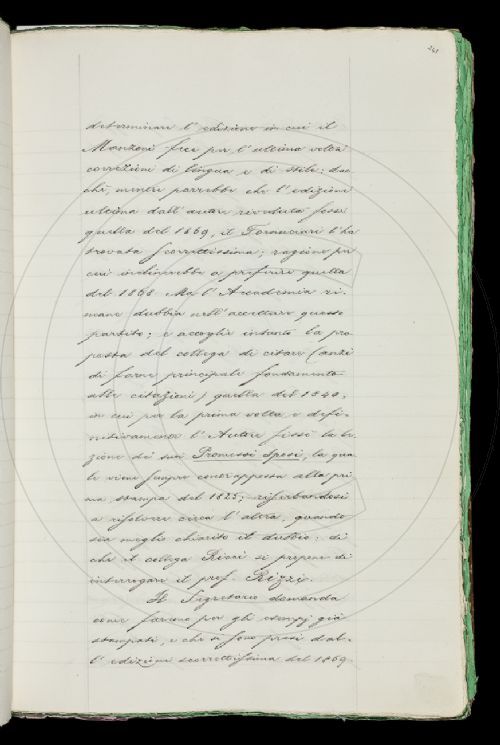 241
determinare l' edizione in cui il
Manzoni fece per l' ultima volta
correzioni di lingua e di stile: due
chè, mentre parrebbe che l' edizione
ultima dall' autore riveduta fosse
quella del 1869, il Fornaciari l' ha
trovata scorrettissima; ragione per
cui inclinerebbe a preferire quella
del 1868. Ma l' Accademia ri-
mane dubbia nell' accettare questo
partito; e accoglie intanto la pro-
posta del collega di citare (anzi
di farne principale fondamento
alle citazioni) quella del 1840,
in cui per la prima volta e defi-
nitivamente l' Autore fissò la le-
zione de' suoi Promessi Sposi, la qua
le viene sempre contrapposta alla pri
ma stampa del 1825; riserbandosi
a risolvere circa l' altra, quando
sia meglio chiarito il dubbio: di
che il collega Ricci si propone di
interrogare il prof. Rizzi.
Il Segretario domanda
come faremo per gli esempj già
stampati, e che si sono presi dal-
l' edizione scorrettissima del 1869.